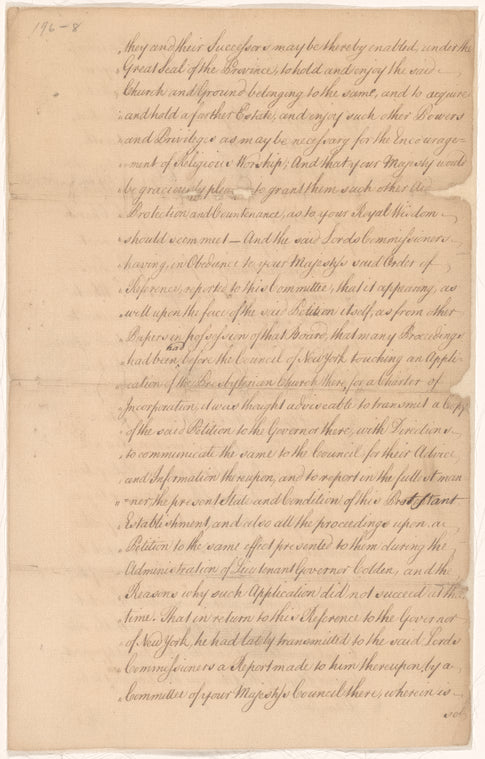 196-8
they and their Successors may be thereby enabled under the
Great Seal of the Province, to hold and enjoy the said
Church and Ground belonging to the same, and to acquire
and hold a farther Estate, and enjoy such other Powers
and Privileges as may be necessary for the Encourage-
ment of Religious Worship; And that your Majesty would
be graciously to grant them such other
Protection and Countenance, as to your Royal Wisdom
should seem meet — And the said Lords Commissioners
having, in Obedance to your Majestys said Order of
Reference, reported to this Committee, that it appearing, as
well upon the face of the said Petition itself, as from other
Papers in possession of that Board, that many Proceedings
had been had before the Council of New York touching an Appli-
cation of the Presbyterian Church there, for a Charter of
Incorporation, it was thought adviseable to transmit a Copy
of the said Petition to the Governor there, with Directions
to communicate the same to the Council for their Advice
and Information thereupon, and to report in the fullest man
=ner, the present State and Condition of this Protestant
Establishment, and also all the proceedings upon a
Petition to the same effect presented to them during the
Administration of Lieutenant Governor Colden, and the
Reasons why such Application did not succeed at that
time. That in return to this Reference to the Governor
of New York, he had lately transmitted to the said Lords
Commissioners a Report made to him thereupon, by a
Committee of your Majestys Council there, wherein is